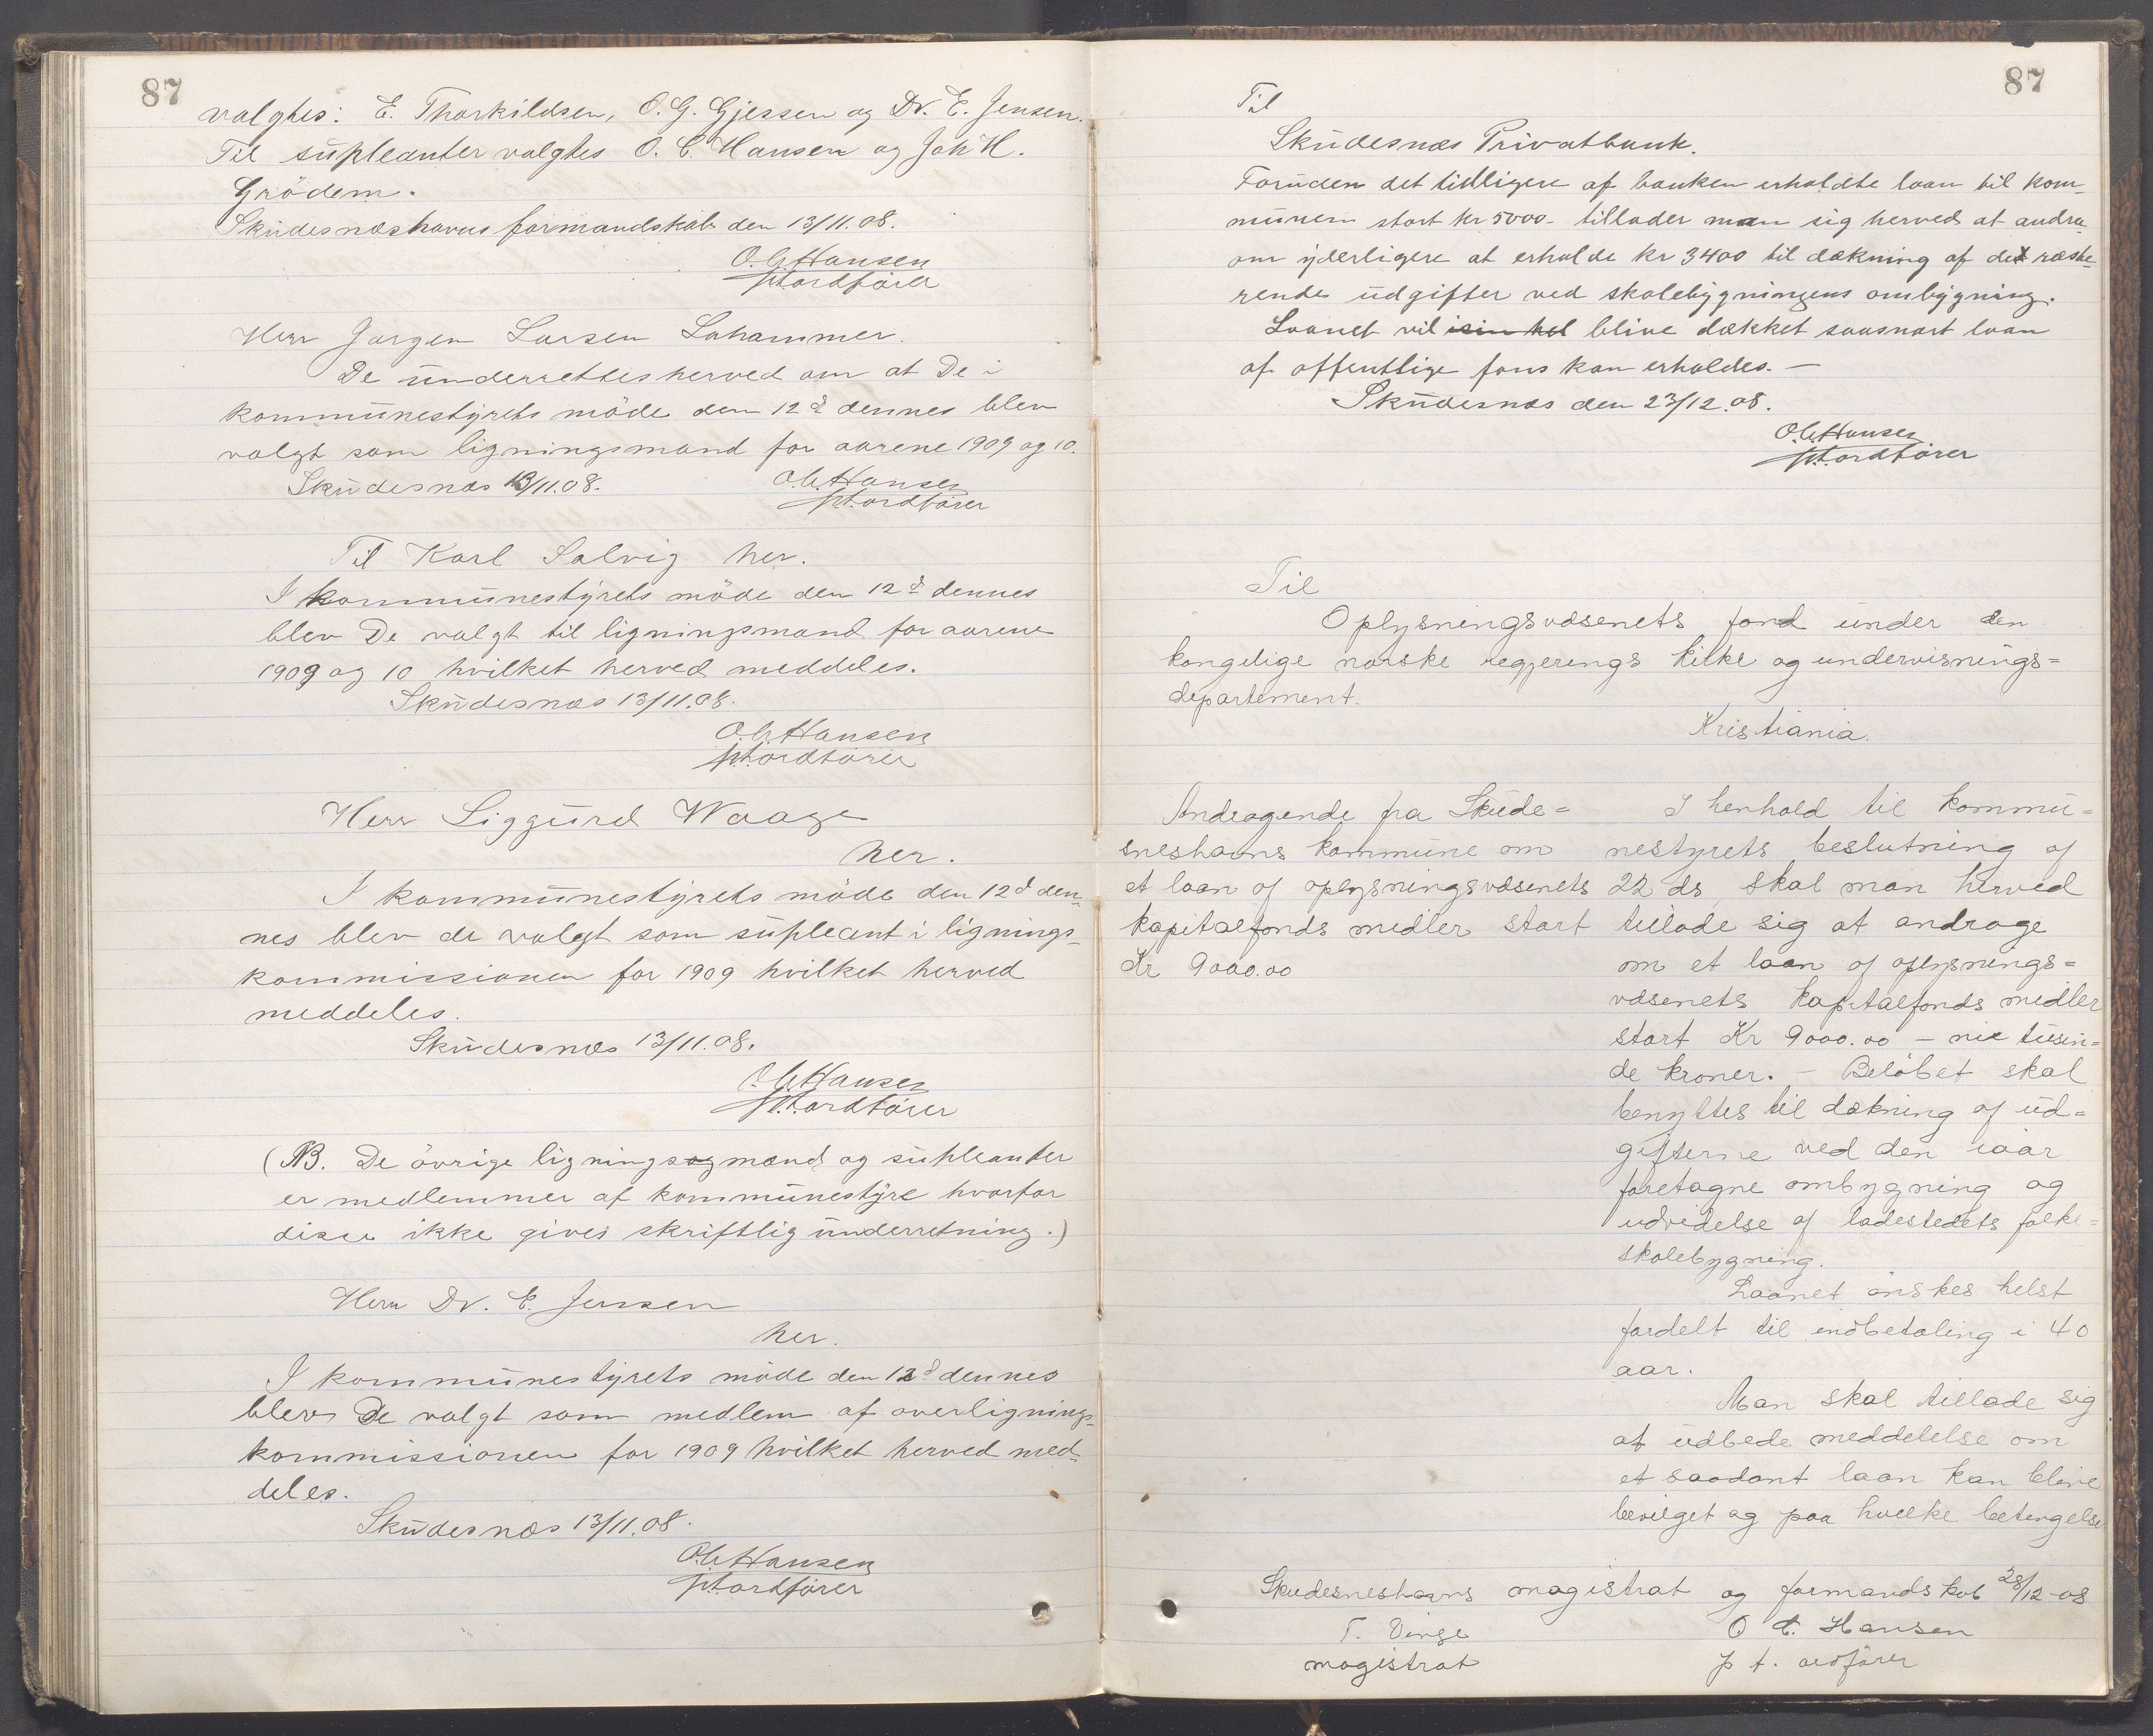 87
valgtes: E. Thorkildsen, O. G. Gjessen og Dr. E. Jensen.
Til supleanter valgtes O. C. Hansen og Joh H.
Grödem.
Skudesnæshavns formandskab den 13/11.08.
O.C. Hansen
p.t. ordförer
Herr Jørgen Larsen Lahammer.
De underrettes herved om at De i
kommunestyrets möde den 12 d dennes blev
valgt som ligningsmand for aarene 1909 og 10.
Skudesnæs 13/11.08.
O.C. Hansen
p.t. ordförer
Til Karl Solvig her.
I kommunestyrets möde den 12 d dennes
blev De valgt til ligningsmand for aarene
1909 og 10 hvilket herved meddeles.
Skudesnæs 13/11.08.
O.C. Hansen
p.t. ordförer
Herr Siggurd Waage
her.
I kommunestyrets möde den 12 d den-
nes blev de valgt som supleant i lignings-
kommissionen for 1909 hvilket herved
meddeles.
Skudesnæs 13/11.08.
O.C. Hansen
p.t. ordförer
(NB. De övrige ligningsog mænd og supleanter
er medlemmer af kommunestyre hvorfor
disse ikke gives skriftlig underretning.)
Herr Dr. E. Jensen
her.
I kommunestyrets möde den 12 d dennes
blev De valgt som medlem af overlignings-
kommissionen for 1909 hvilket herved med-
deles.
Skudesnæs 13/11.08.
O.C. Hansen
p.t. ordförer
87
Til
Skudesnæs Privatbank.
Foruden det tidligere af banken erholdte laan til kom-
munen stort kr 5000 - tillader man sig herved at andra
om yderligere at erholde kr 3400 til dækning af det ræste-
rende udgifter ved skolebygningens ombygning.
Laanet vil blive dækket saasnart laan
af offentlige fons kan erholdes. —
Skudesnæs den 23/12.08.
O.C. Hansen
p.t. ordförer
Til
Oplysningsvæsenets fond under den
kongelige norske regjerings kirke og undervisnings=
departement.
Kristiania.
Andragende fra Skude=
sneshavns kommune om
et laan af oplysningsvæsenets
kapitalfonds midler stort
Kr 9000.00
I henhold til kommu=
nestyrets beslutning af
22 ds, skal man herved
tillade sig at androge
om et laan af oplysnings=
væsenets kapitalfonds midler
stort Kr 9000.00 — nie tusin=
de kroner. — Beløbet skal
benyttes til dækning af ud=
gifterne ved den iaar
foretagne ombygning og
udvidelse af ladestedets folke=
skolebygning.
Laanet ønskes helst
fordelt til indbetaling i 40
aar.
Man skal tillade sig
at udbede meddelelse om
et saadant laan kan blive
bevilget og paa hvilke betingelse
Skudesneshavns magistrat og formandskab 28/12-08
T. Vinge
magistrat
O C. Hansen
p t. ordfører